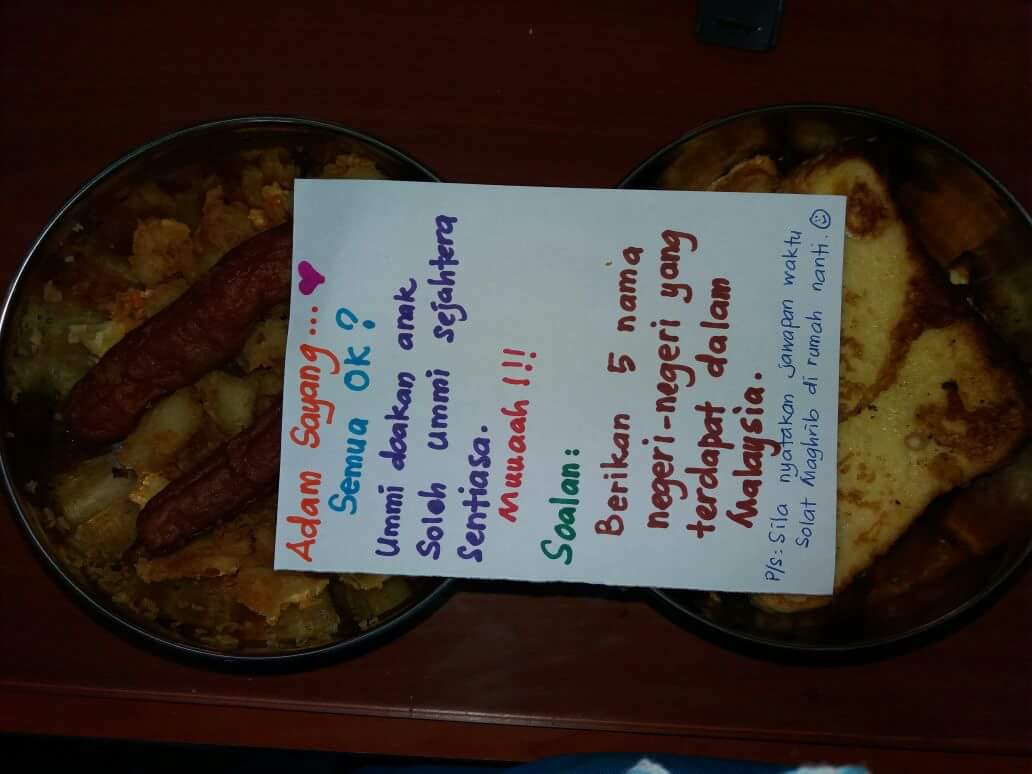 Adam Sayang...
Semua OK?
Ummi doakan anak
Soleh Ummi sejahtera
sentiasa.
Muuaah!!!
Soalan:
Berikan 5 nama
negeri-negeri yang
terdapat dalam
Malaysia.
P/s: Sila nyatakan jawapan waktu
solat Maghrib di rumah nanti.